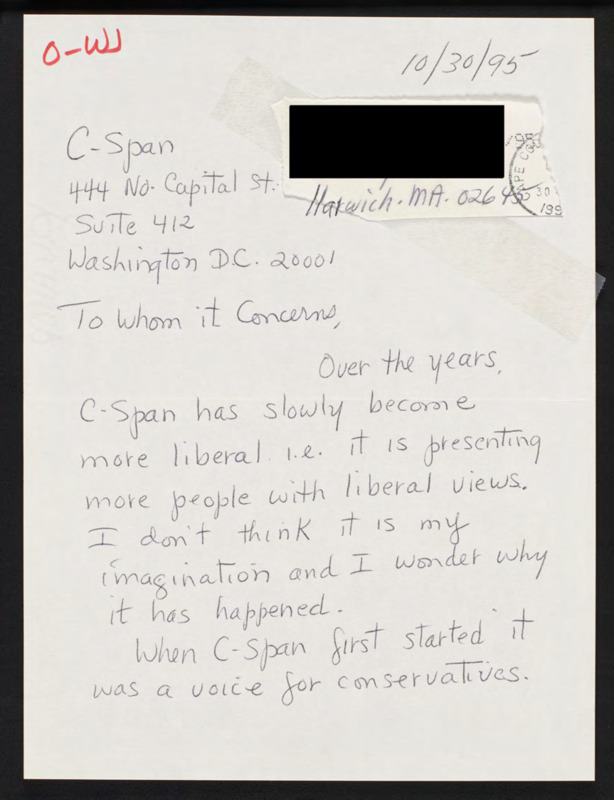 O-W
10/30/95
C-Span
444 No. Capital St.
Suite 412
Washington D.C. 20001
Harwich. MA. 02645
To Whom it Concerns,
Over the years,
C-Span has slowly become
more liberal i.e. it is presenting
more people with liberal views.
I don't think it is my
imagination and I wonder why
it has happened.
When C-Span first started it
was a voice for conservatives.